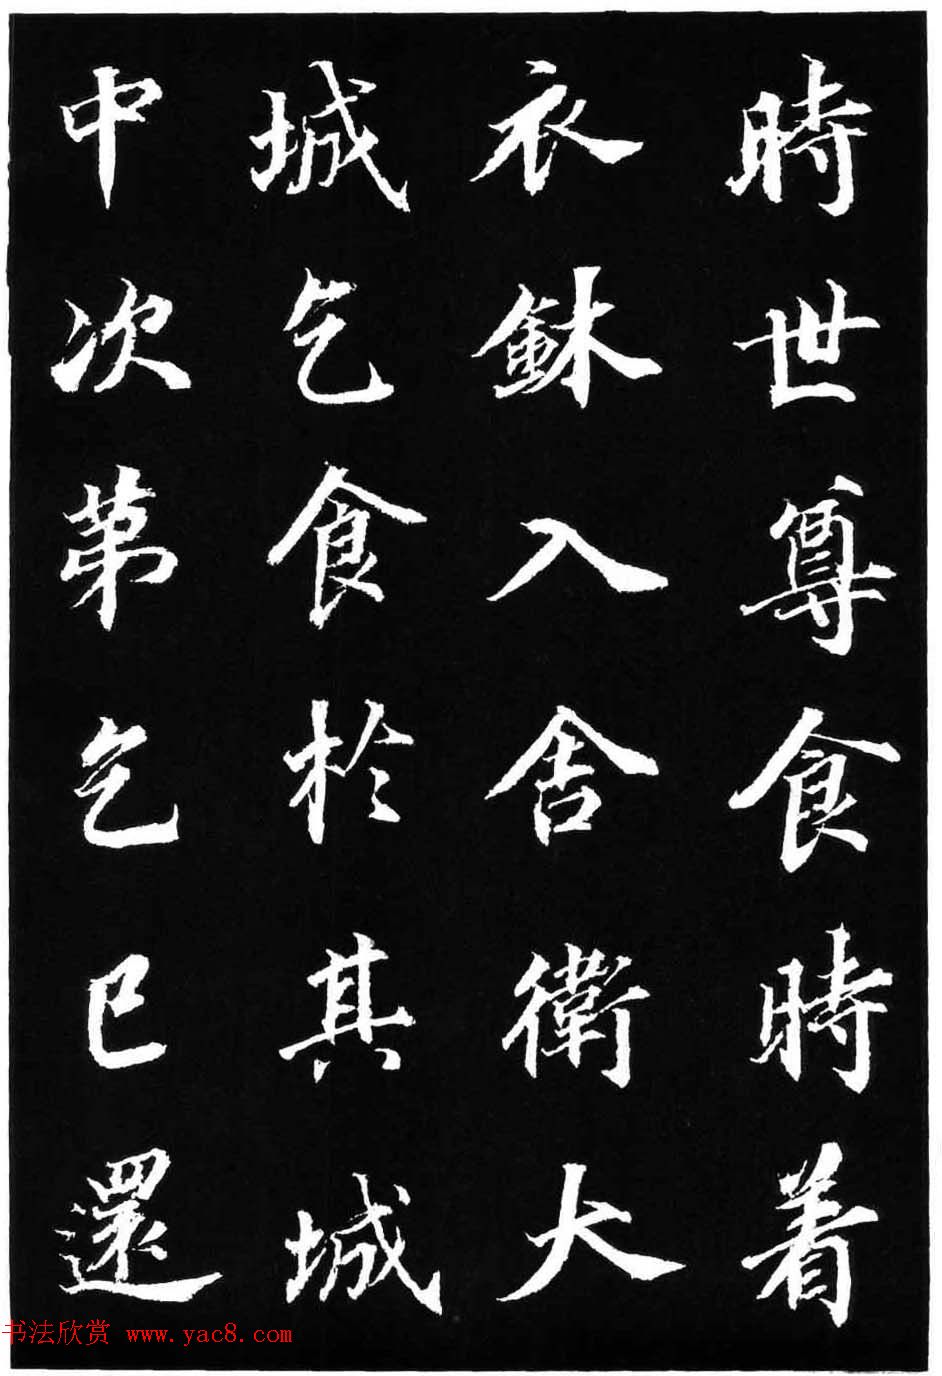 時世尊食時着
衣鉢入舍衛大
城乞食於其城
中次第乞已還
书法欣赏 www.yac8.com